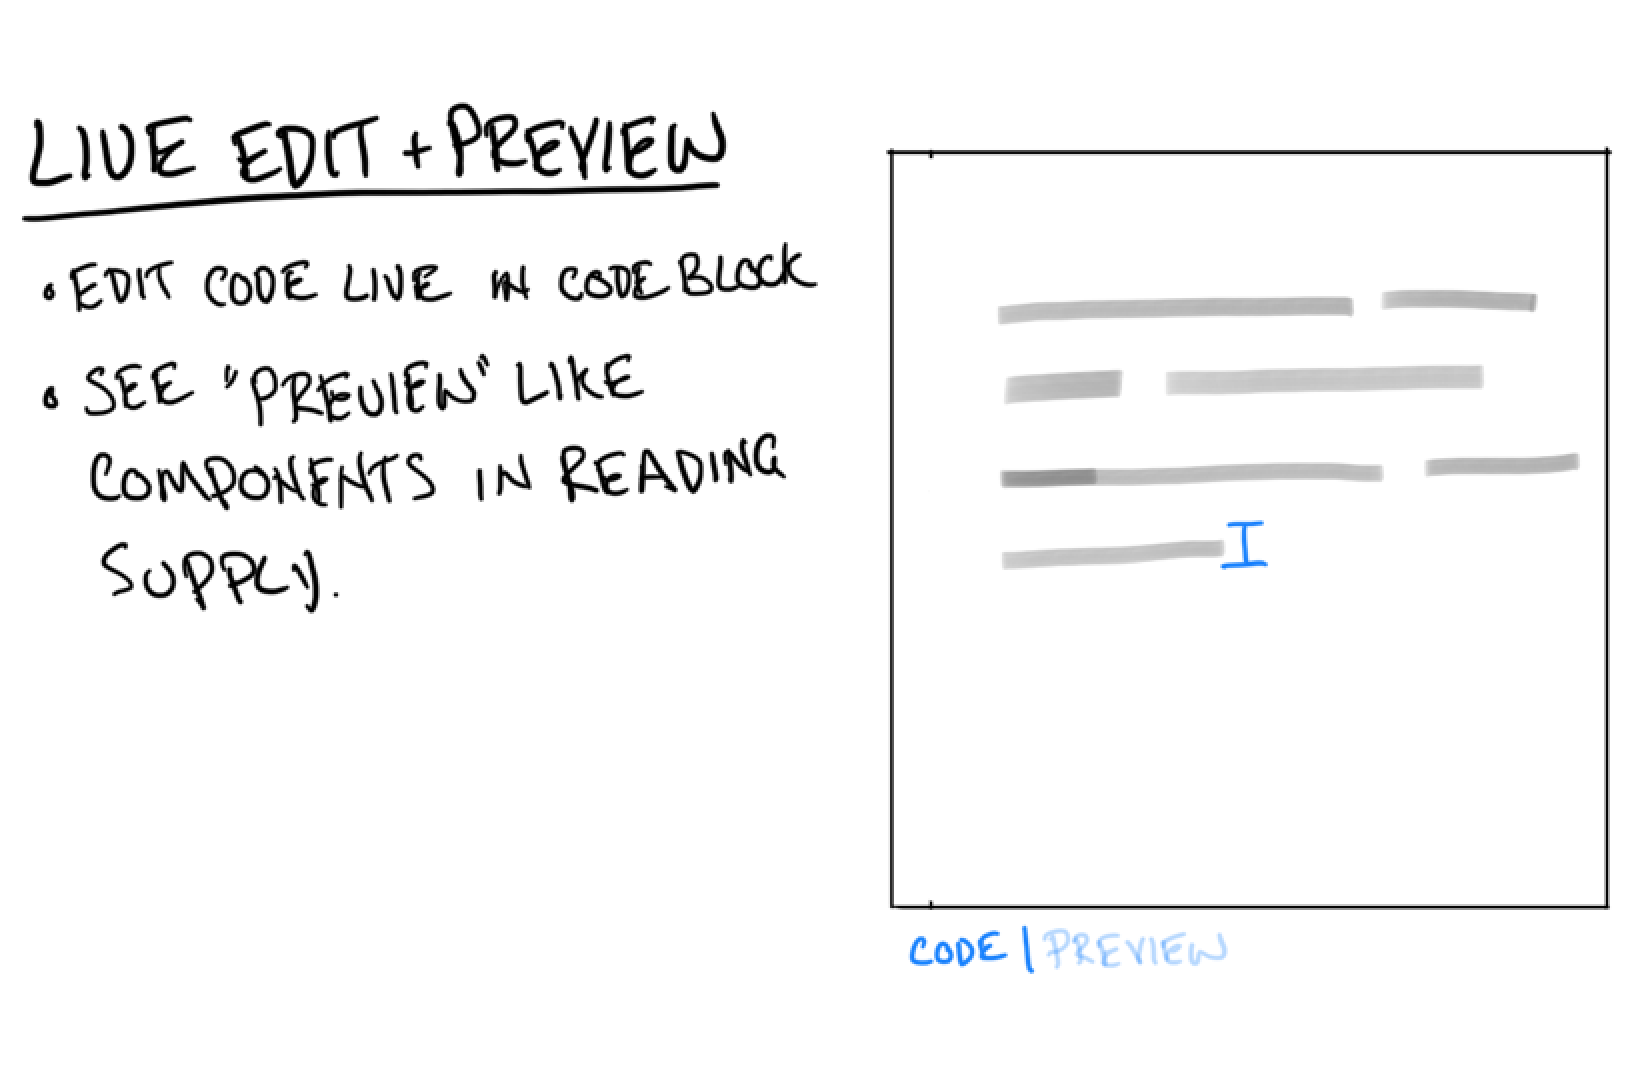 LIVE EDIT + PREVIEW
• EDIT CODE LIVE IN CODE BLOCK
• SEE "PREVIEW" LIKE
COMPONENTS IN READING
SUPPLY.
CODE | PREVIEW